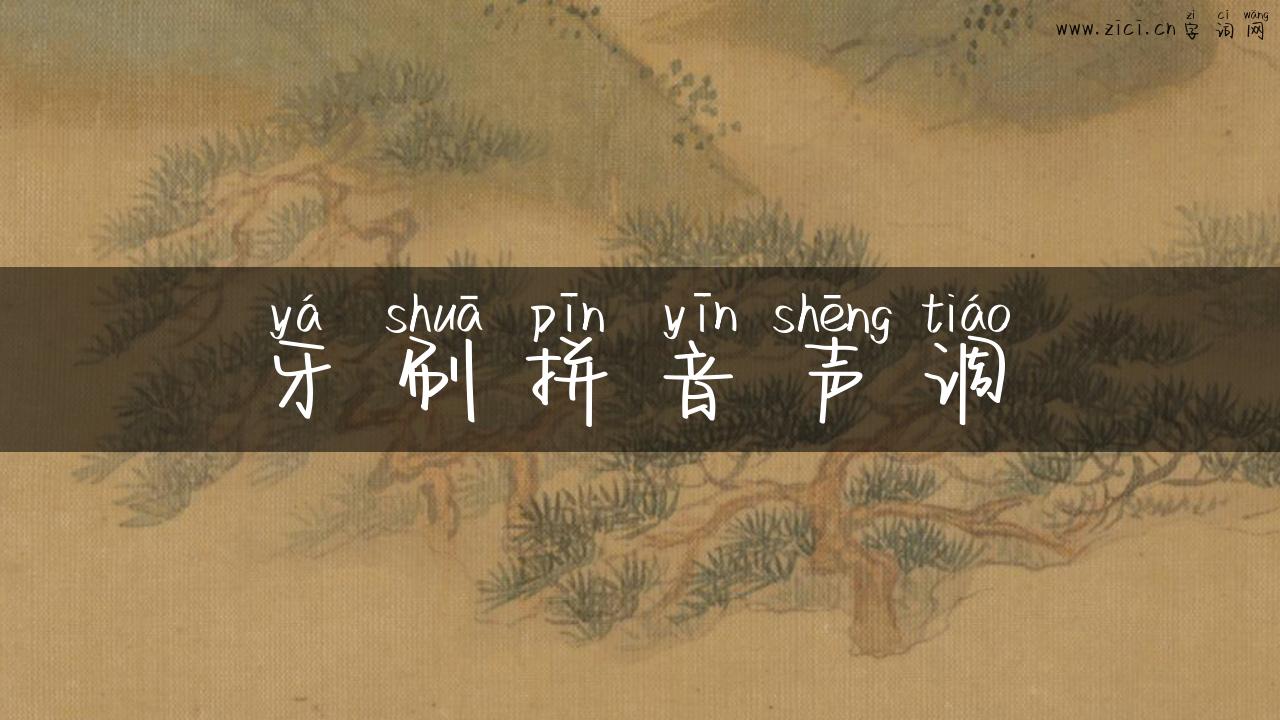 zì cí wǎng
www.zici.cn 字词网
yá shuā pīn yīn shēng tiáo
牙刷拼音声调